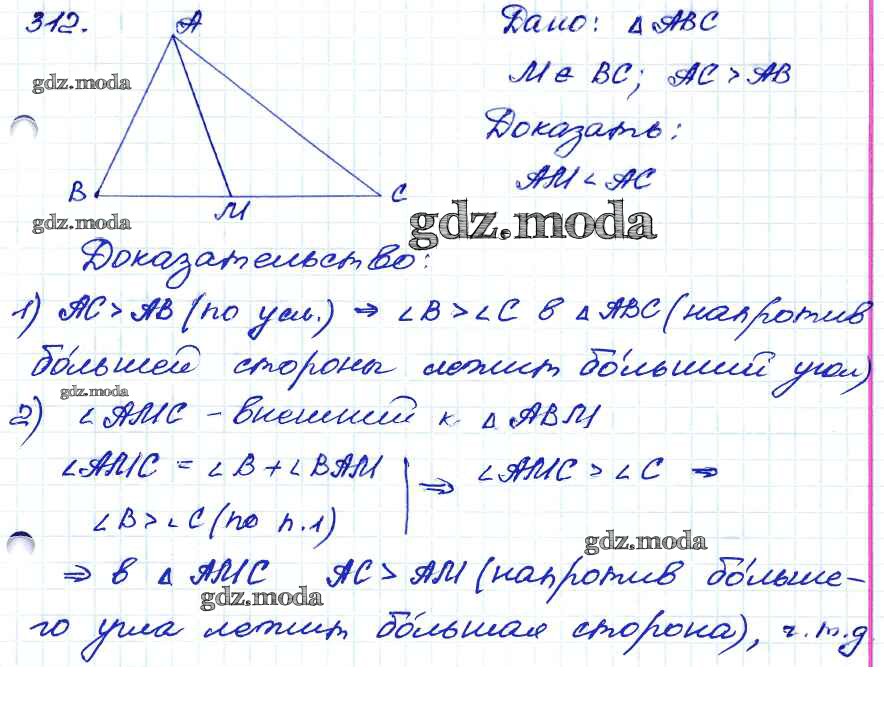 312.
A
Дано: △ ABC
gdz.moda
M ∈ BC; AC > AB
Доказать:
B
M
C
AM < AC
gdz.moda
gdz.moda
Доказательство:
1) AC > AB (по усл.) ⇒ ∠B > ∠C в △ ABC (напротив
бо́льшей стороны лежит бо́льший угол)
gdz.moda
2) ∠AMC – внешний к △ ABM
∠AMC = ∠B + ∠BAM
⇒ ∠AMC > ∠C ⇒
∠B > ∠C (по п.1)
gdz.moda
⇒ в △ AMC AC > AM (напротив бо́льше-
gdz.moda
го угла лежит бо́льшая сторона), ч.т.д